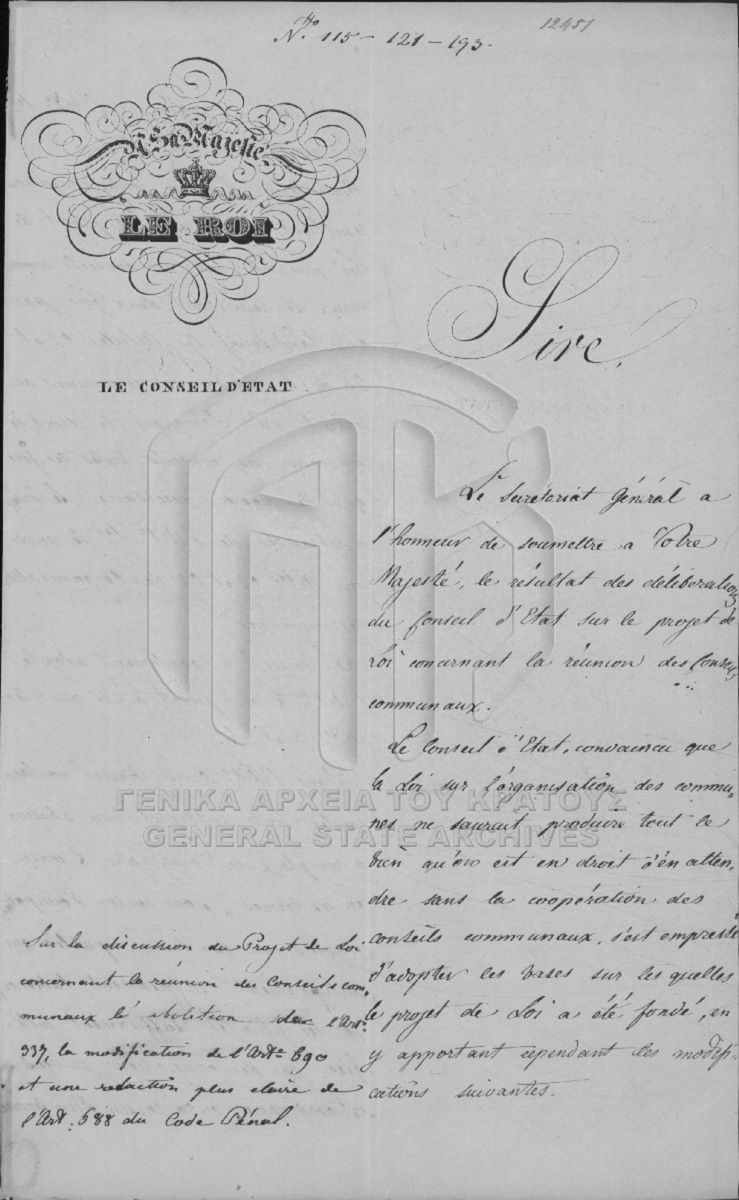 Nº 115 - 121 - 193.
12451
A Sa Majesté
LE ROI
LE CONSEIL D'ETAT
Sire,
Le Secrétariat Général a
l'honneur de soumettre a Votre
Majesté, le résultat des délibérations
du Conseil d'Etat sur le projet de
Loi concernant la réunion des Conseils
communaux.
Le Conseil d'Etat, convaincu que
la Loi sur l'organisation des commu-
nes ne saurait produire tout le
bien qu'on est en droit d'en atten-
dre sans la coopération des
conseils communaux, s'est empressé
d'adopter les bases sur les quelles
le projet de Loi a été fondé, en
y apportant cependant les modifi-
cations suivantes.
Sur la discussion du Projet de Loi
concernant la réunion des Conseils com-
munaux lé abolition de l'Art:
337, la modification de l'Art: 690
et une redaction plus claire de
l'Art: 688 du Code Pénal.
ΓΕΝΙΚΑ ΑΡΧΕΙΑ ΤΟΥ ΚΡΑΤΟΥΣ
GENERAL STATE ARCHIVES